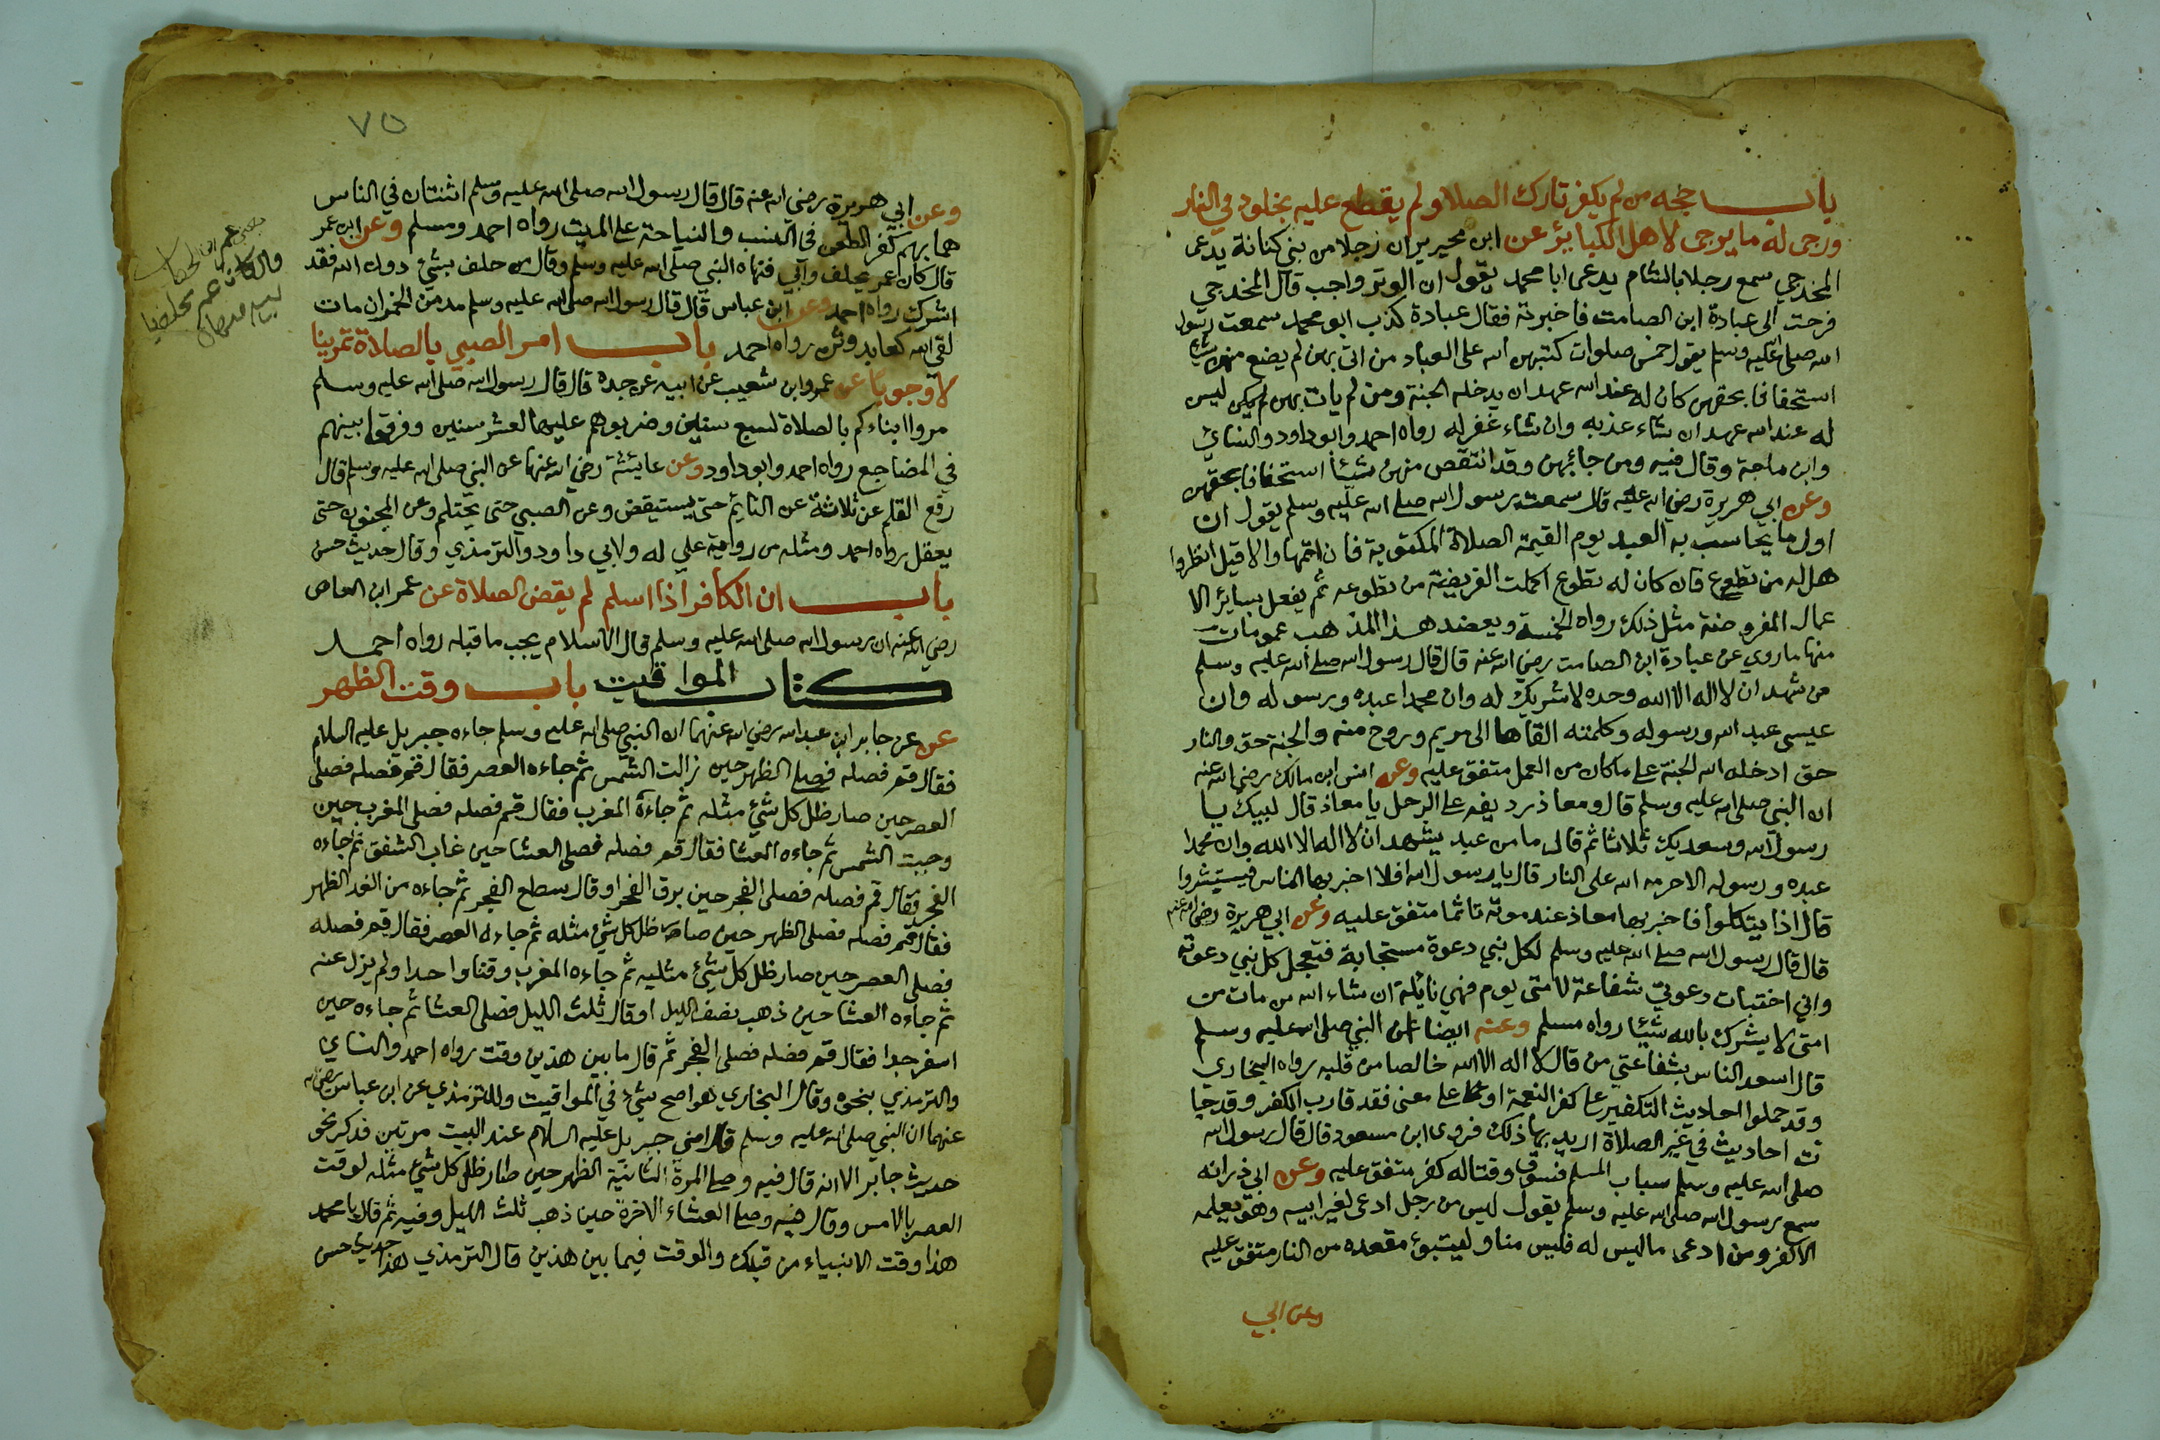 باب حجه من لم يكفر تارك الصلاة ولم يقطع عليه بخلود في النار
ورجى له ما يرجى لاهل الكبائر عن ابن محيريز ان رجلا من بني كنانة يدعى
المخدجي سمع رجلا بالشام يدعى ابا محمد يقول ان الوتر واجب قال المخدجي
فرحت الى عبادة ابن الصامت فاخبرته فقال عبادة كذب ابو محمد سمعت رسول
الله صلى الله عليه وسلم يقول خمس صلوات كتبهن الله على العباد من اتى بهن لم يضع منهن شيئا
استخفافا بحقهن كان له عند الله عهد ان يدخله الجنة ومن لم يات بهن لم يكن ليس
له عند الله عهد ان شاء عذبه وان شاء غفر له رواه احمد وابو داود والنسائي
وابن ماجة وقال فيه ومن جاء بهن وقد انتقص منهن شيئا استخفافا بحقهن
وعن ابي هريرة رضي الله عليه قال سمعت رسول الله صلى الله عليه وسلم يقول ان
اول ما يحاسب به العبد يوم القيمة الصلاة المكتوبة فان اتمها والا قيل انظروا
هل له من تطوع فان كان له تطوع اكملت الفريضة من تطوعه ثم يفعل بسائر الا
عمال المفروضة مثل ذلك رواه الخمسة ويعضد هذا المذهب عمومات
منها ما روي عن عبادة ابن الصامت رضي الله عنه قال قال رسول الله صلى الله عليه وسلم
من شهد ان لا اله الا الله وحده لا شريك له وان محمدا عبده ورسوله وان
عيسى عبد الله ورسوله وكلمته القاها الى مريم وروح منه والجنة حق والنار
حق ادخله الله الجنة على ما كان من العمل متفق عليه وعن انس ابن مالك رضي الله عنه
ان النبي صلى الله عليه وسلم قال ومعاذ رديفه على الرحل يا معاذ قال لبيك يا
رسول الله وسعديك ثلاثا ثم قال ما من عبد يشهد ان لا اله الا الله وان محمدا
عبده ورسوله الا حرمه الله على النار قال يا رسول الله افلا اخبر بها الناس فيستبشروا
قال اذا يتكلوا فاخبر بها معاذ عند موته تاثما متفق عليه وعن ابي هريرة رضي الله عنه
قال قال رسول الله صلى الله عليه وسلم لكل نبي دعوة مستجابة فتعجل كل نبي دعوته
واني اختبات دعوتي شفاعة لامتى يوم فهي نائلة ان شاء الله من مات من
امتى لا يشرك بالله شيئا رواه مسلم وعنه ايضا عن النبي صلى الله عليه وسلم
قال اسعد الناس بشفاعتي من قال لا اله الا الله خالصا من قلبه رواه البخاري
وقد حملوا احاديث التكفير على كفر النعمة او على معنى فقد قارب الكفر وقد جا
ت احاديث في غير الصلاة اريد بها ذلك فروى ابن مسعود قال قال رسول الله
صلى الله عليه وسلم سباب المسلم فسوق وقتاله كفر متفق عليه وعن ابي ذر انه
سمع رسول الله صلى الله عليه وسلم يقول ليس من رجل ادعى لغير ابيه وهو يعلمه
الا كفر ومن ادعى ما ليس له فليس منا وليتبوء مقعده من النار متفق عليه
وعن ابي
٧٥
وعن ابي هريرة رضي الله عنه قال قال رسول الله صلى الله عليه وسلم اثنتان في الناس
هما بهم كفر الطعن في النسب والنياحة على الميت رواه احمد ومسلم وعن ابن عمر
قال كان عمر يحلف وابي فنهاه النبي صلى الله عليه وسلم وقال من حلف بشئ دون الله فقد
اشرك رواه احمد وعن ابن عباس قال قال رسول الله صلى الله عليه وسلم مدمن الخمر ان مات
لقي الله كعابد وثن رواه احمد باب امر الصبي بالصلاة تمرينا
لا وجوبا عن عمرو ابن شعيب عن ابيه عن جده قال قال رسول الله صلى الله عليه وسلم
مروا ابناءكم بالصلاة لسبع سنين وضربوهم عليها لعشر سنين وفرقوا بينهم
في المضاجع رواه احمد وابو داود وعن عايشة رضي الله عنها عن النبي صلى الله عليه وسلم قال
رفع القلم عن ثلاثة عن النائم حتى يستيقض وعن الصبي حتى يحتلم وعن المجنون حتى
يعقل رواه احمد ومثله من رواية علي له ولابي داود والترمذي وقال حديث حسن
باب ان الكافر اذا اسلم لم يقض الصلاة عن عمر ابن العاص
رضي الله عنه ان رسول الله صلى الله عليه وسلم قال الاسلام يجب ما قبله رواه احمد
كتاب المواقيت باب وقت الظهر
عن عن جابر ابن عبد الله رضي الله عنهما ان النبي صلى الله عليه وسلم جاءه جبريل عليه السلام
فقال قم فصله فصلى الظهر حين زالت الشمس ثم جاءه العصر فقال قم فصله فصلى
العصر حين صار ظل كل شئ مثله ثم جاءه المغرب فقال قم فصله فصلى المغرب حين
وجبت الشمس ثم جاءه العشا فقال قم فصله فصلى العشا حين غاب الشفق ثم جاءه
الفجر فقال قم فصله فصلى الفجر حين برق الفجر او قال سطع الفجر ثم جاءه من الغد الظهر
فقال قم فصله فصلى الظهر حين صار ظل كل شئ مثله ثم جاءه العصر فقال قم فصله
فصلى العصر حين صار ظل كل شئ مثليه ثم جاءه المغرب وقتا واحدا ولم يزل عنه
ثم جاءه العشا حين ذهب نصف الليل او قال ثلث الليل فصلى العشا ثم جاءه حين
اسفر جدا فقال قم فصله فصلى الفجر ثم قال ما بين هذين وقت رواه احمد والنساي
والترمذي بنحوه وقال البخاري هو اصح شئ في المواقيت وللترمذي عن ابن عباس رضي الله
عنهما ان النبي صلى الله عليه وسلم قال امني جبريل عليه السلام عند البيت مرتين فذكر نحو
حديث جابر الا انه قال فيه وصلى المرة الثانية الظهر حين صار ظل كل شئ مثله لوقت
العصر بالامس وقال فيه وصلى العشاء الاخرة حين ذهب ثلث الليل وفيه ثم قال يا محمد
هذا وقت الانبياء من قبلك والوقت فيما بين هذين قال الترمذي هذا حديث حسن